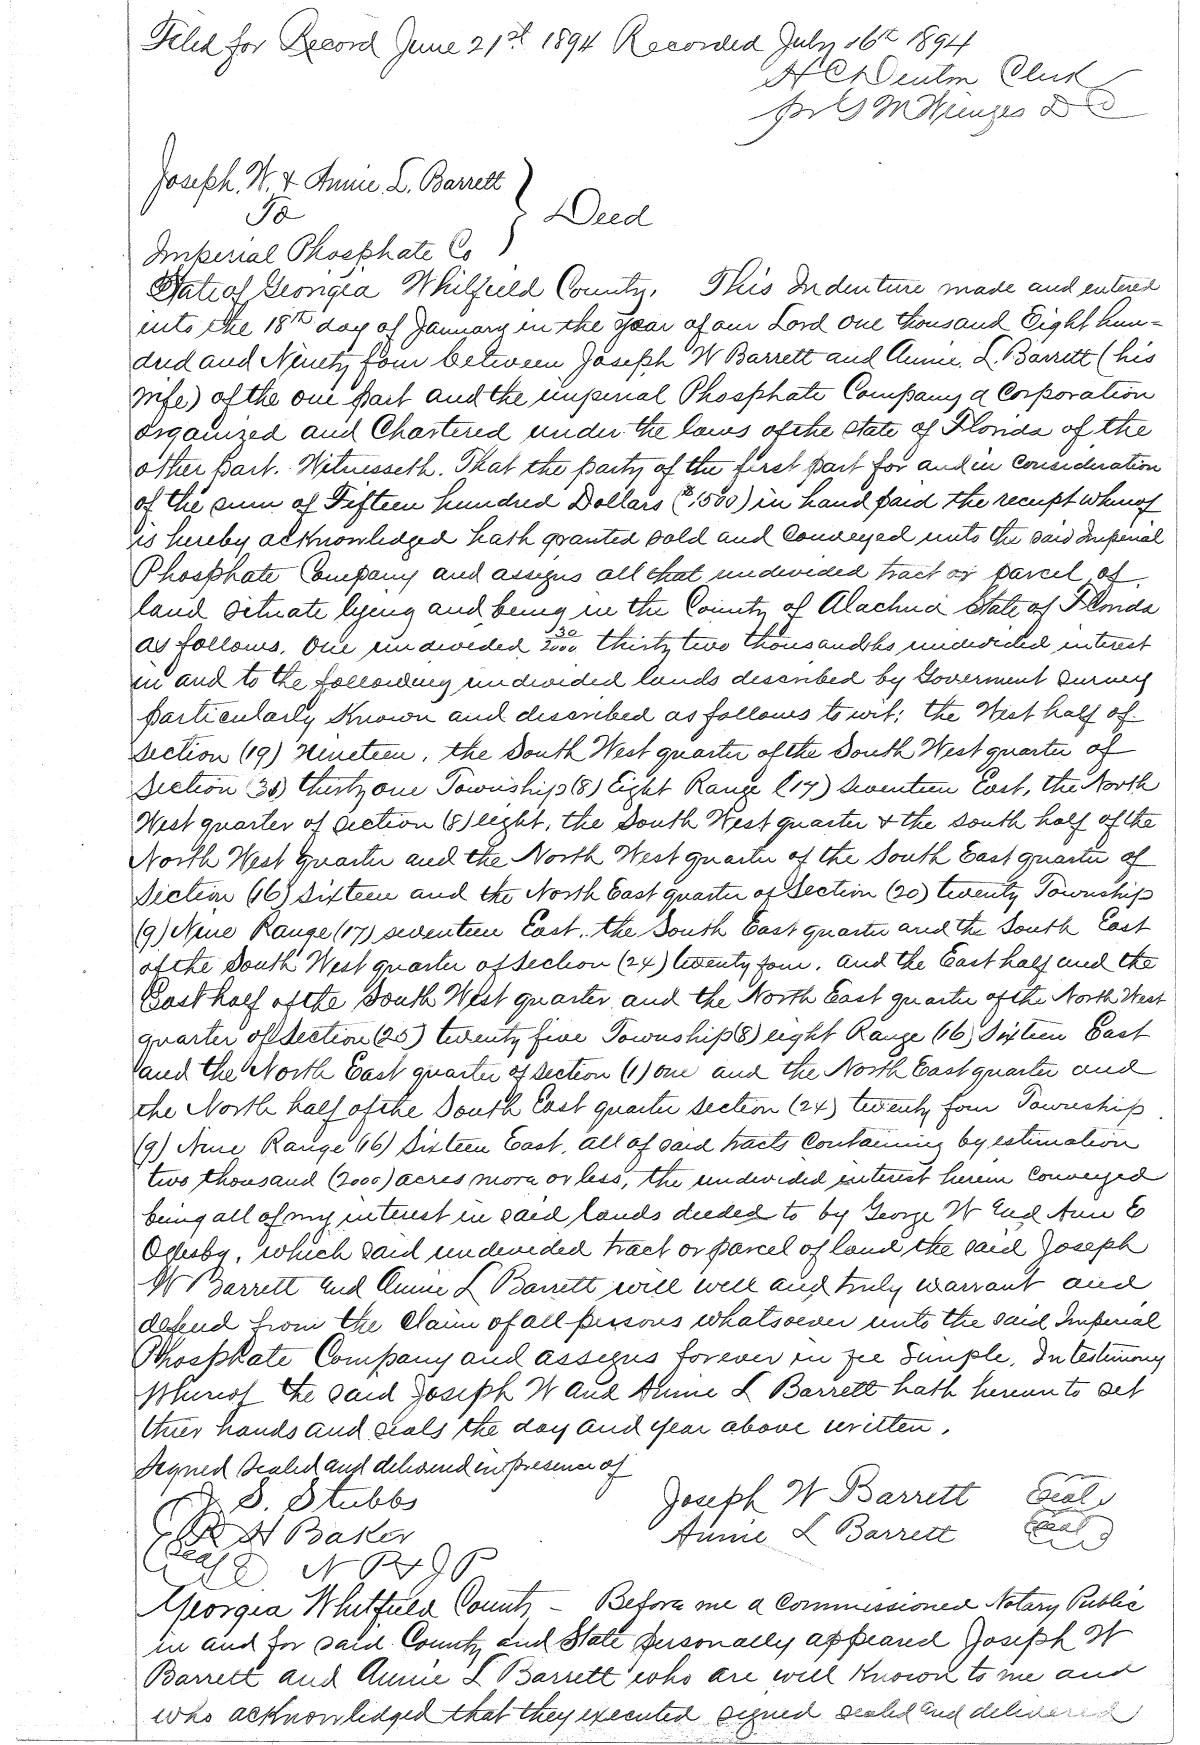 Filed for Record June 21st 1894 Recorded July 16th 1894
H C Denton Clerk
pr G M Wienges D C
Joseph. W. & Annie. L. Barrett
To
Deed
Imperial Phosphate Co
State of Georgia Whitfield County. This Indenture made and entered
into the 18th day of January in the year of our Lord One thousand Eight hun=
dred and Ninety four between Joseph W Barrett and Annie. L. Barrett (his
wife) of the one part and the imperial Phosphate Company a Corporation
organized and Chartered under the laws of the state of Florida of the
other part. Witnesseth. That the party of the first part for and in consideration
of the sum of Fifteen hundred Dollars ($1500) in hand paid the receipt whereof
is hereby acknowledged hath granted sold and conveyed unto the said Imperial
Phosphate Company and assigns all that undivided tract or parcel of
land situate lying and being in the County of Alachua State of Florida
as follows. One undivided 30/2000 thirty two thousandths undivided interest
in and to the following undivided lands described by Goverment survey
particularly known and described as follows to wit; the West half of
section (19) Nineteen, the South West quarter of the South West quarter of
Section (31) thirty one Township (8) Eight Range (17) seventeen East, the North
West quarter of section (8) eight, the South West quarter & the south half of the
North West quarter and the North West quarter of the South East quarter of
Section (16) Sixteen and the North East quarter of Section (20) twenty Township
(9) Nine Range (17) seventeen East. the South East quarter and the South East
of the South West quarter of Section (24) twenty four. and the East half and the
East half of the South West quarter and the North East quarter of the North West
quarter of Section (25) twenty five Township (8) eight Range (16) Sixteen East
and the North East quarter of section (1) one and the North East quarter and
the North half of the South East quarter section (24) twenty four Township
(9) Nine Range (16) Sixteen East. all of said tracts containing by estimation
two thousand (2000) acres more or less, the undivided interest herein conveyed
being all of my interest in said lands deeded to by George W and Ann E
Oglesby. which said undivided tract or parcel of land the said Joseph
W Barrett and Annie L Barrett will well and truly warrant and
defend from the claim of all persons whatsoever unto the said Imperial
Phosphate Company and assigns forever in fee Simple. In testimony
whereof the said Joseph W and Annie L Barrett hath hereunto set
their hands and seals the day and year above written.
Signed sealed and delivered in presence of
J. S. Stubbs
Joseph W Barrett Seal
R H Baker
Annie L Barrett Seal
Seal N P & J P
Georgia Whitfield County - Before me a commissioned Notary Public
in and for said County and State personally appeared Joseph W
Barrett and Annie L Barrett who are well known to me and
who acknowledged that they executed signed sealed and delivered